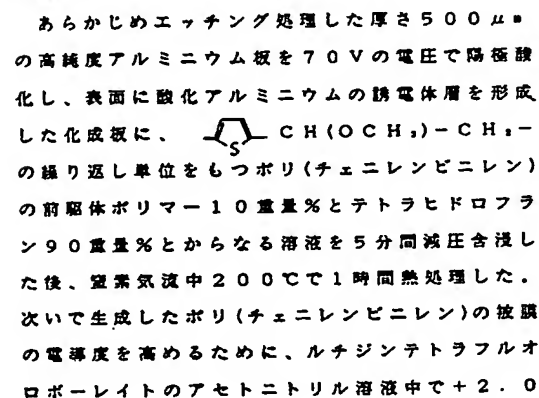 あらかじめエッチング処理した厚さ５００μm
の高純度アルミニウム板を７０Ｖの電圧で陽極酸
化し、表面に酸化アルミニウムの誘電体層を形成
した化成板に、 S ＣＨ(ＯＣＨ₃)－ＣＨ₂－
の繰り返し単位をもつポリ(チェニレンビニレン)
の前駆体ポリマー１０重量％とテトラヒドロフラ
ン９０重量％とからなる溶液を５分間減圧含浸し
た後、窒素気流中２００℃で１時間熱処理した。
次いで生成したポリ(チェニレンビニレン)の被膜
の電導度を高めるために、ルチジンテトラフルオ
ロボーレイトのアセトニトリル溶液中で＋２．０